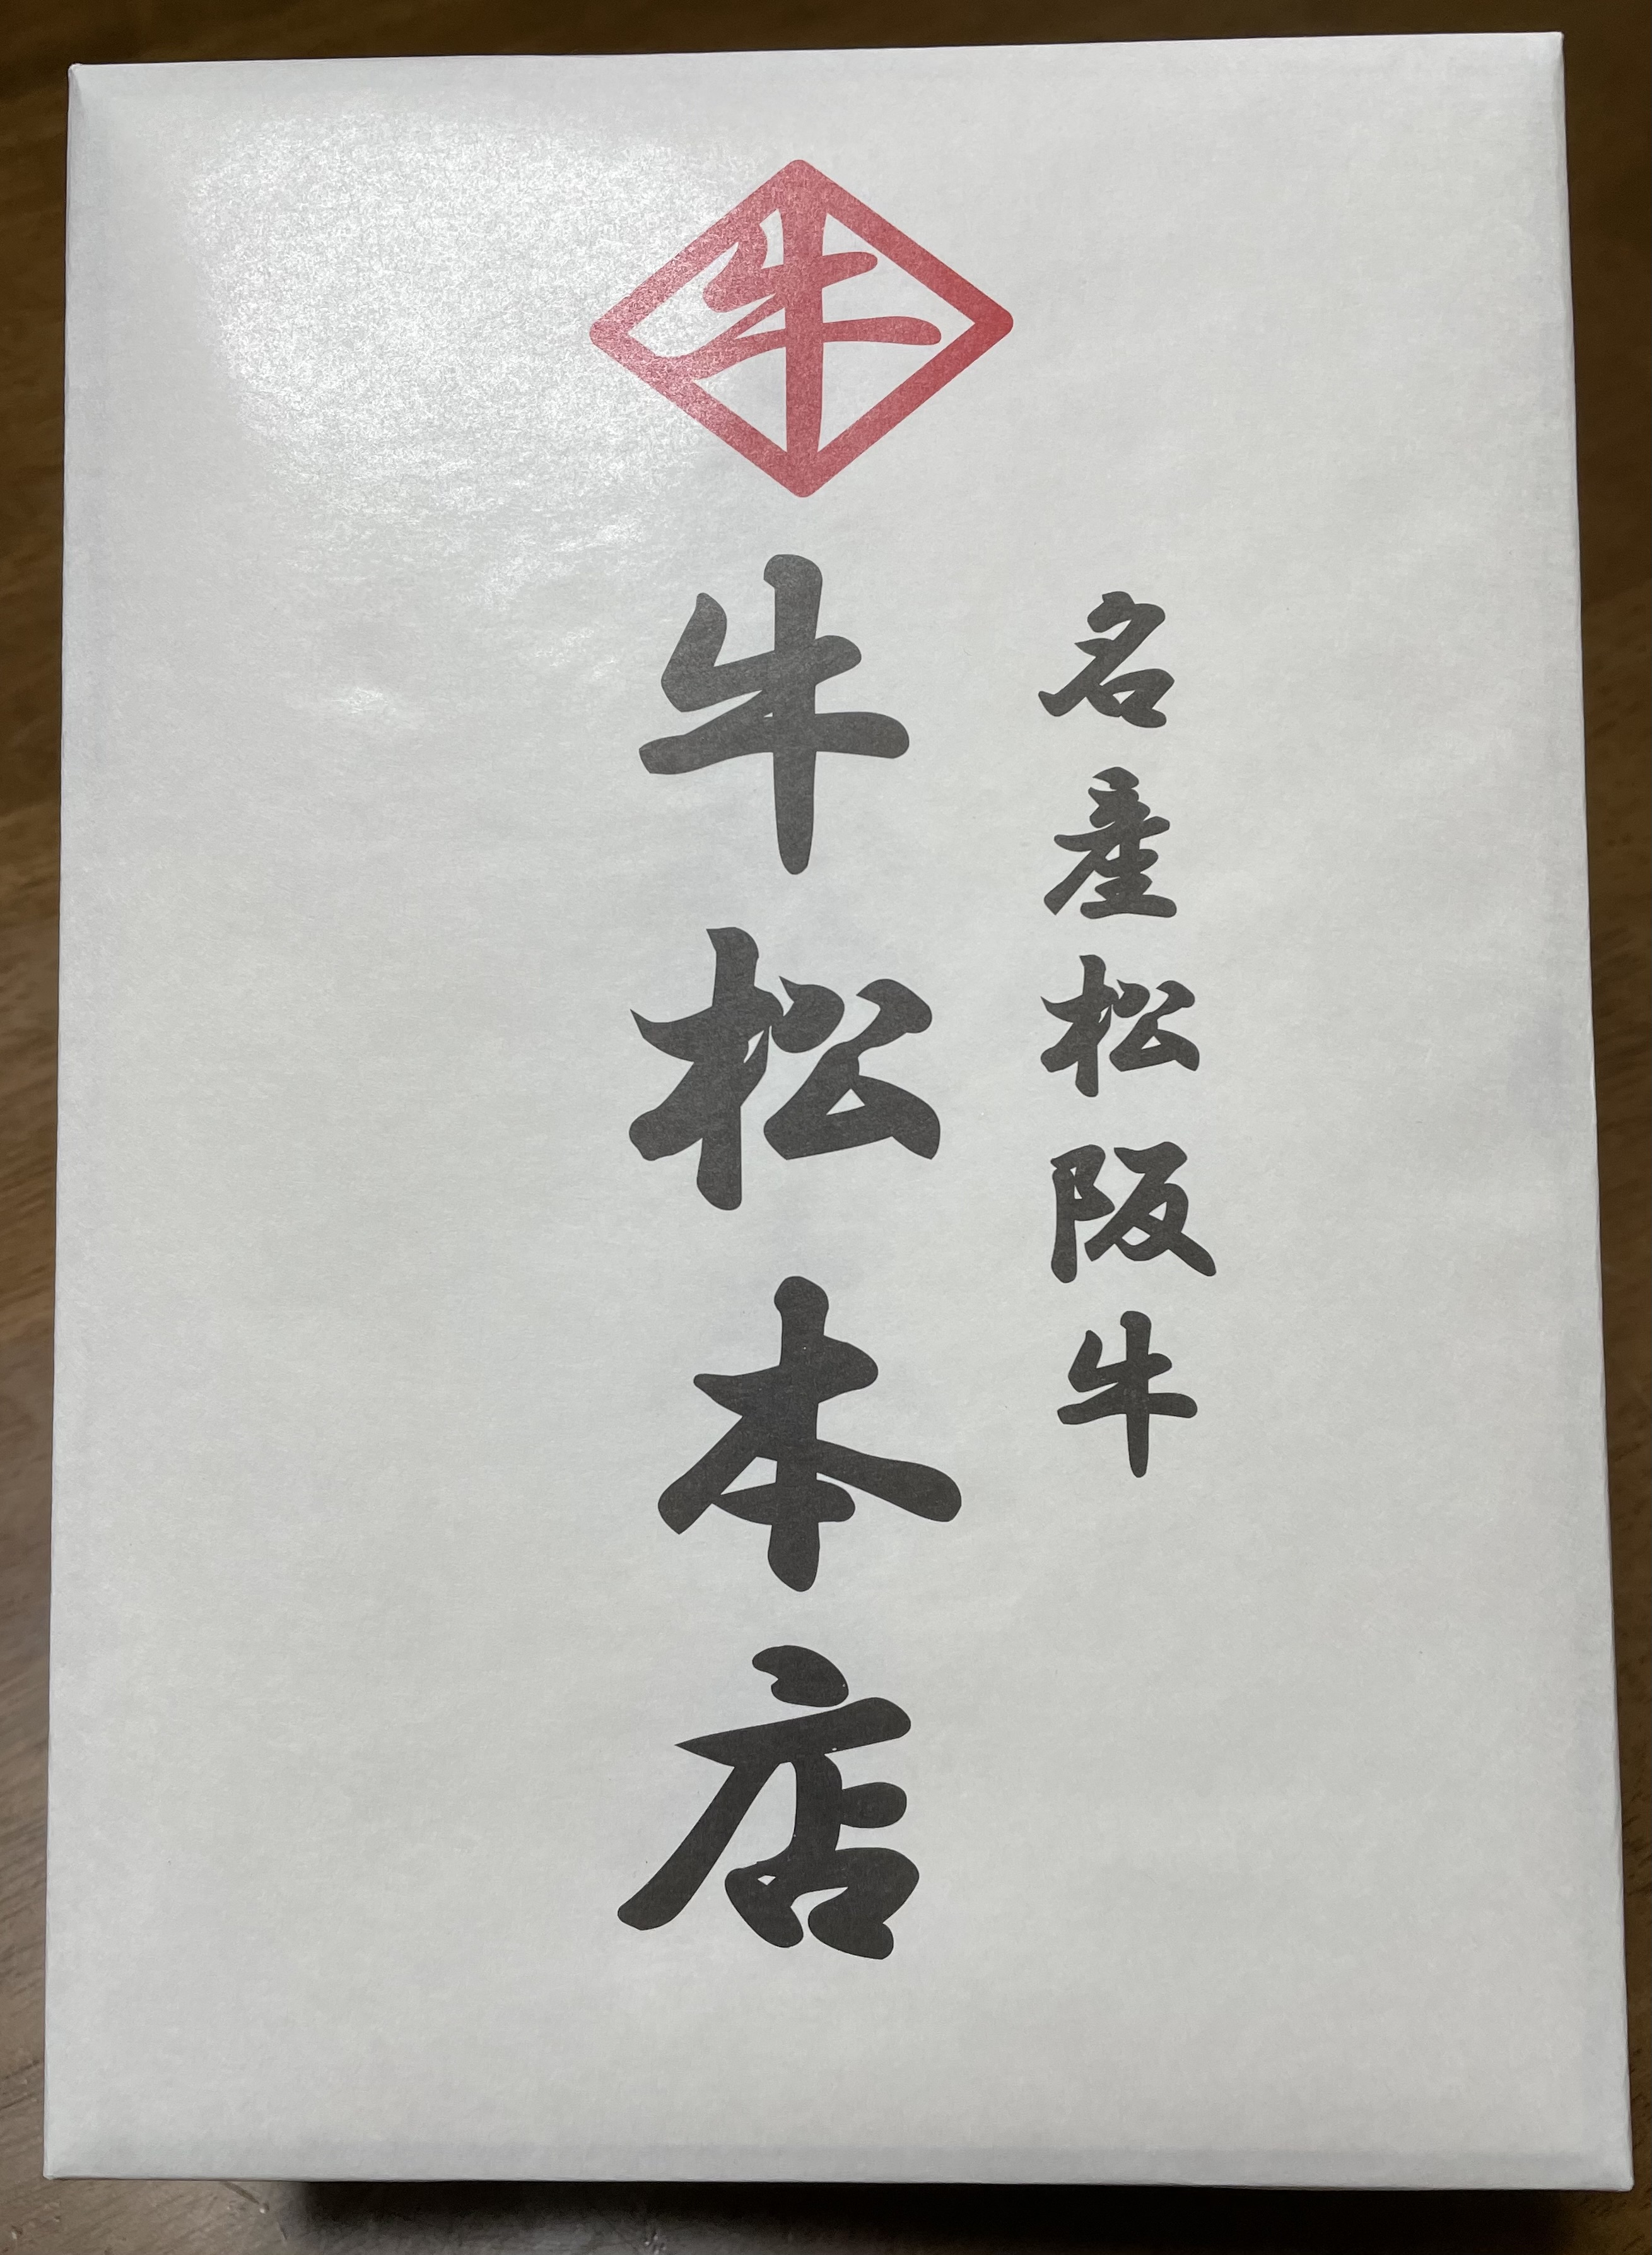 牛
名産松阪牛
牛松本店